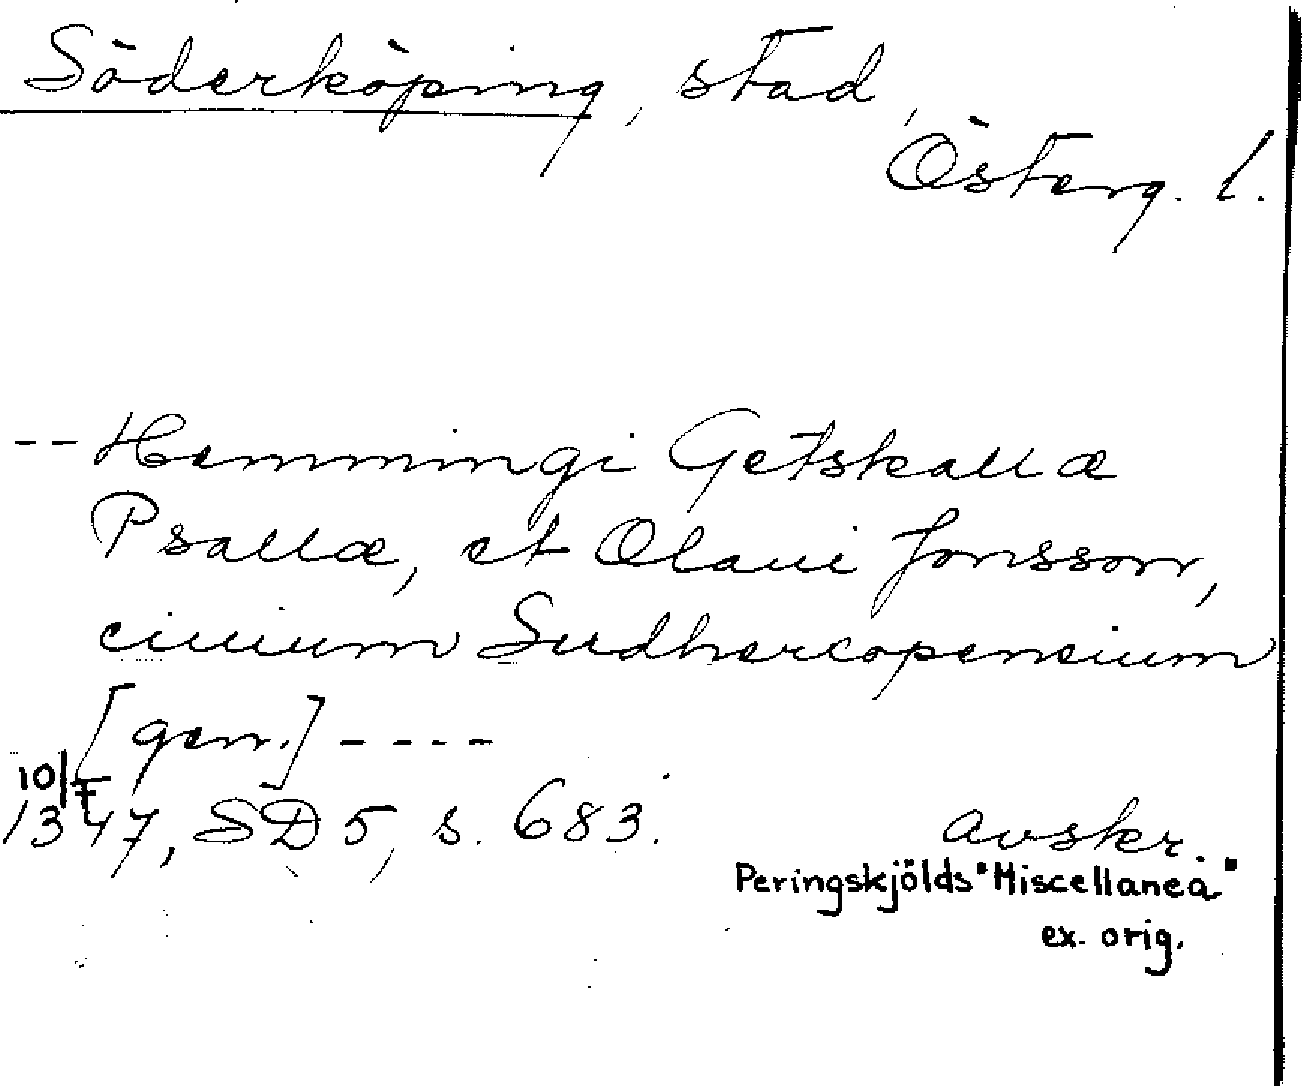 Söderköping, stad,
Österg. l.
-- Hemmingi Getskallæ
Psallæ, et Olaui Jonsson,
ciuium Sudhercopensium
[gen.] - - - -
10/7
1347, SD 5, s. 683.
Avskr.
Peringskjölds "Miscellanea"
ex. orig.